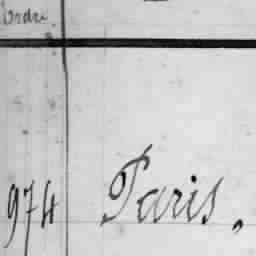 Ordre
974 Paris,